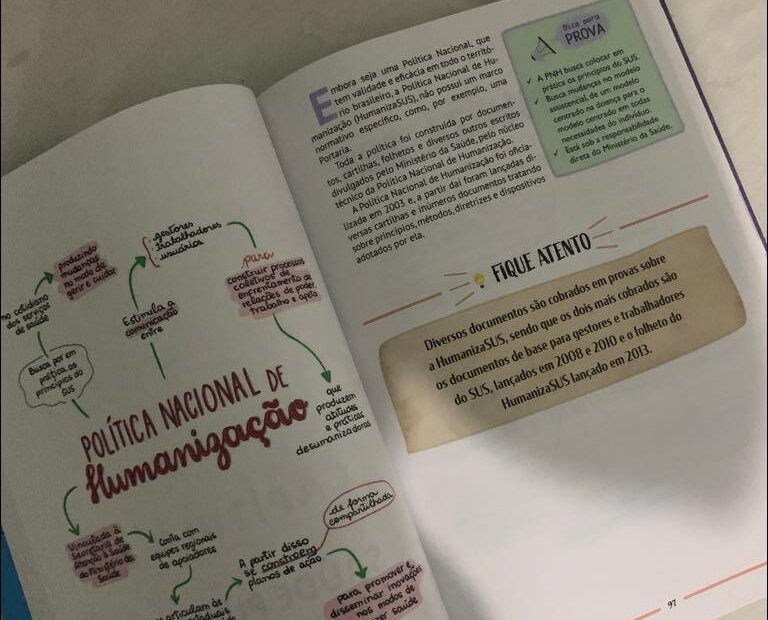 no cotidiano
dos serviços
de saúde
produzindo
mudanças
no modo de
gerir e cuidar
Busca por em
prática os
princípios do
SUS
Estimula a
comunicação
entre
gestores
trabalhadores
usuários
para
construir processos
coletivos de
enfrentamento de
relações de poder,
trabalho e afeto
que
produzem
atitudes
e práticas
desumanizadoras
POLÍTICA NACIONAL DE
Humanização
Vinculada à
Secretaria de
Atenção à Saúde
do Ministério da
Saúde
Conta com
equipes regionais
de apoiadores
articulam às
A partir disso
se constroem
planos de ação
de forma
compartilhada
para promover e
disseminar inovações
nos modos de
fazer saúde
Embora seja uma Política Nacional, que
tem validade e eficácia em todo o territó-
rio brasileiro, a Política Nacional de Hu-
manização (HumanizaSUS), não possui um marco
normativo específico, como, por exemplo, uma
Portaria.
Toda a política foi construída por documen-
tos, cartilhas, folhetos e diversos outros escritos
divulgados pelo Ministério da Saúde, pelo núcleo
técnico da Política Nacional de Humanização.
A Política Nacional de Humanização foi oficia-
lizada em 2003 e, a partir daí foram lançadas di-
versas cartilhas e inúmeros documentos tratando
sobre princípios, métodos, diretrizes e dispositivos
adotados por ela.
Dica para
PROVA
✓ A PNH busca colocar em
prática os princípios do SUS.
✓ Busca mudanças no modelo
assistencial, de um modelo
centrado na doença para o
modelo centrado em todas
necessidades do indivíduo.
✓ Está sob a responsabilidade
direta do Ministério da Saúde.
FIQUE ATENTO
Diversos documentos são cobrados em provas sobre
a HumanizaSUS, sendo que os dois mais cobrados são
os documentos de base para gestores e trabalhadores
do SUS, lançados em 2008 e 2010 e o folheto do
HumanizaSUS lançado em 2013.
97